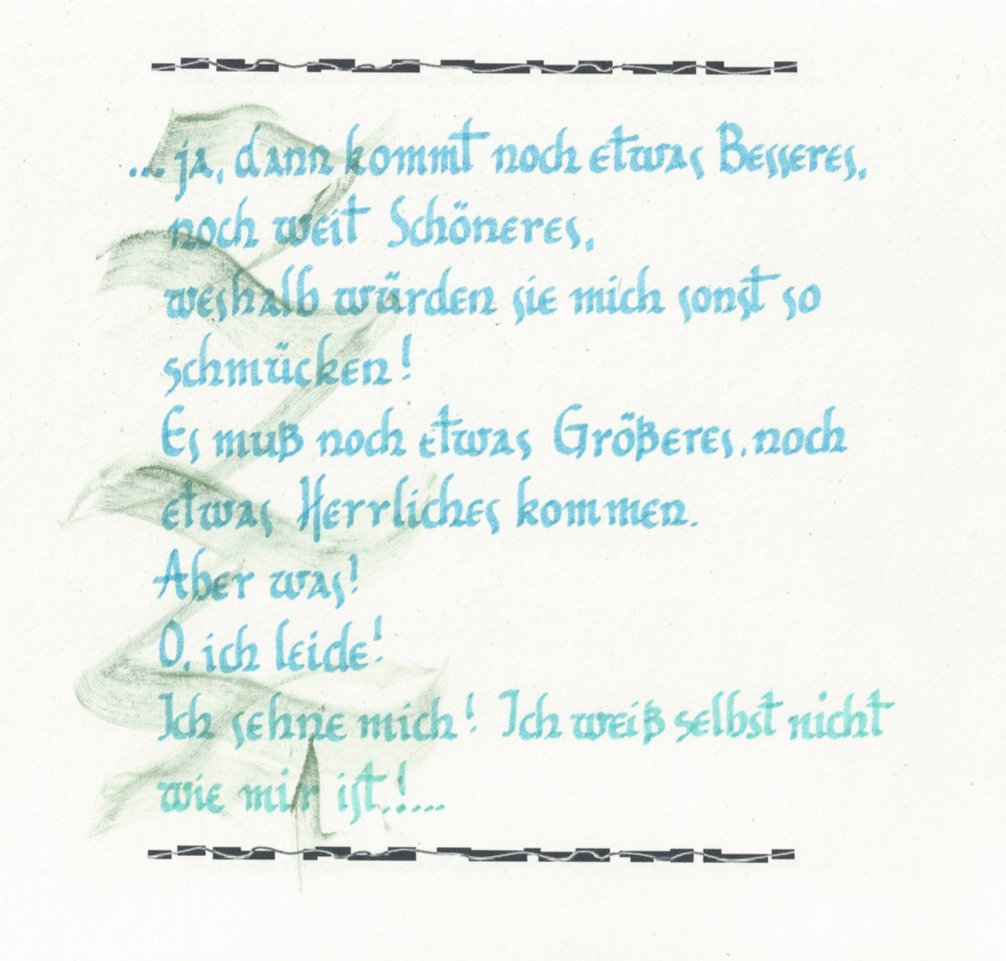 ... ja, dann kommt noch etwas Besseres,
noch weit Schöneres,
weshalb würden sie mich sonst so
schmücken!
Es muß noch etwas Größeres, noch
etwas Herrliches kommen.
Aber was!
O, ich leide!
Ich sehne mich! Ich weiß selbst nicht
wie mir ist.!...